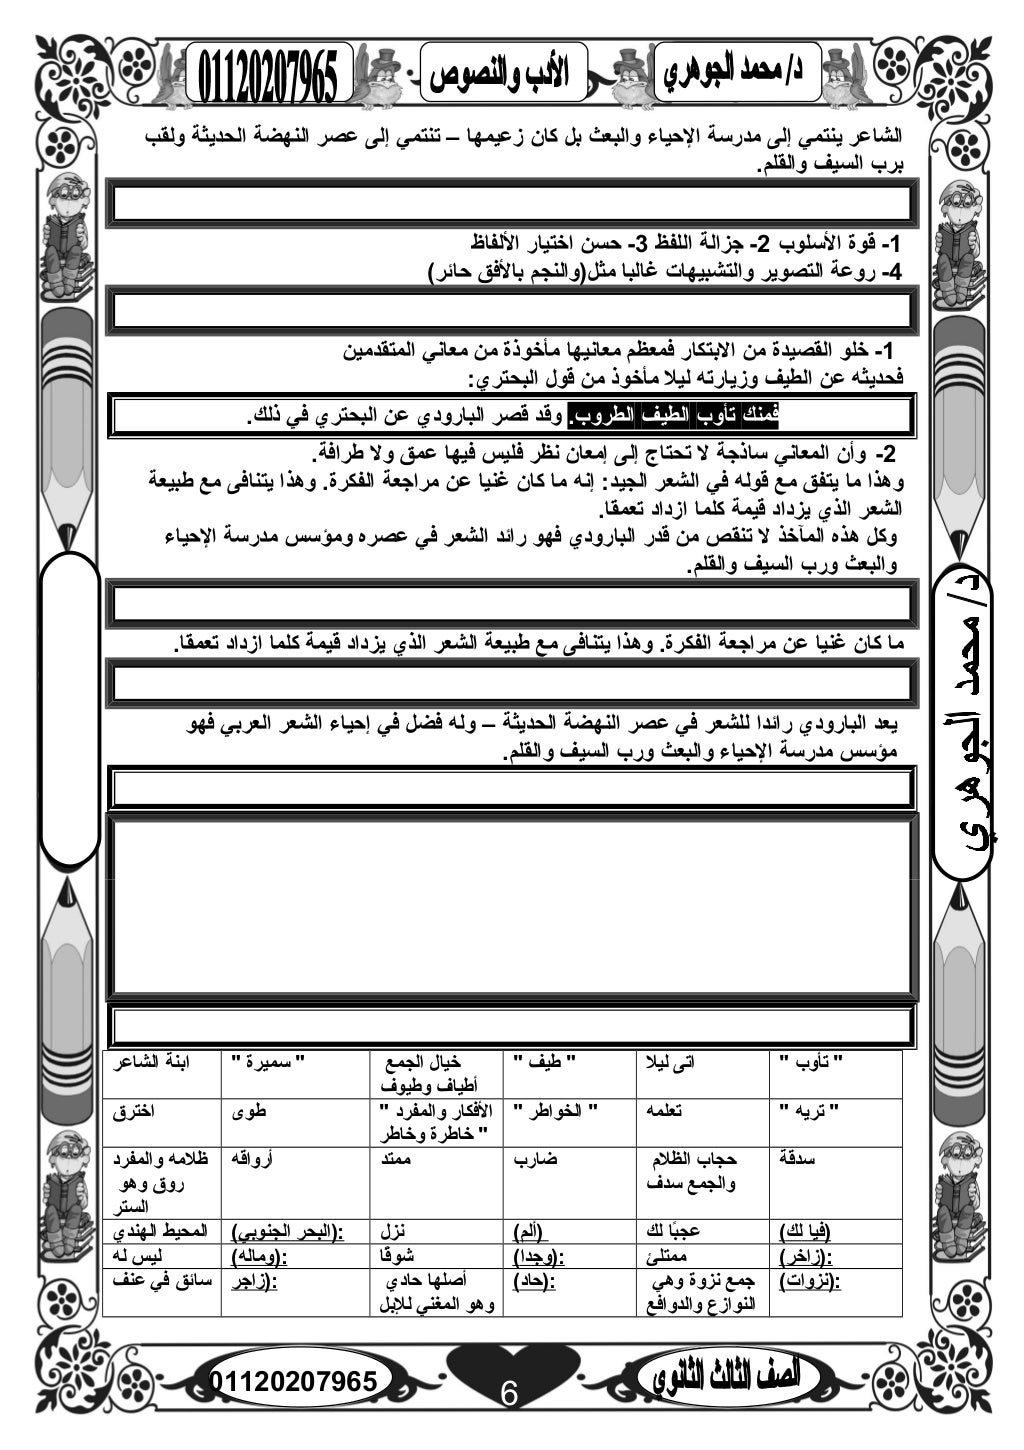 د/ محمد الجوهري
الأدب والنصوص
01120207965
الشاعر ينتمي إلى مدرسة الإحياء والبعث بل كان زعيمها – تنتمي إلى عصر النهضة الحديثة ولقب
برب السيف والقلم.
1- قوة الأسلوب 2- جزالة اللفظ 3- حسن اختيار الألفاظ
4- روعة التصوير والتشبيهات غالبا مثل(والنجم بالأفق حائر)
1- خلو القصيدة من الابتكار فمعظم معانيها مأخوذة من معاني المتقدمين
فحديثه عن الطيف وزيارته ليلا مأخوذ من قول البحتري:
فمنك تأوب الطيف الطروب. وقد قصر البارودي عن البحتري في ذلك.
2- وأن المعاني ساذجة لا تحتاج إلى إمعان نظر فليس فيها عمق ولا طرافة.
وهذا ما يتفق مع قوله في الشعر الجيد: إنه ما كان غنيا عن مراجعة الفكرة. وهذا يتنافى مع طبيعة
الشعر الذي يزداد قيمة كلما ازداد تعمقا.
وكل هذه المآخذ لا تنقص من قدر البارودي فهو رائد الشعر في عصره ومؤسس مدرسة الإحياء
والبعث ورب السيف والقلم.
ما كان غنيا عن مراجعة الفكرة. وهذا يتنافى مع طبيعة الشعر الذي يزداد قيمة كلما ازداد تعمقا.
يعد البارودي رائدا للشعر في عصر النهضة الحديثة – وله فضل في إحياء الشعر العربي فهو
مؤسس مدرسة الإحياء والبعث ورب السيف والقلم.
" تأوب " اتى ليلا " طيف " خيال الجمع " سميرة " ابنة الشاعر
أطياف وطيوف
" تريه " تعلمه " الخواطر " الأفكار والمفرد " طوى اخترق
خاطرة وخاطر "
سدقة حجاب الظلام ضارب ممتد أرواقه ظلامه والمفرد
والجمع سدف روق وهو
الستر
(فيا لك) عجبًا لك (ألم) نزل (البحر الجنوبي): المحيط الهندي
(زاخر): ممتلئ (وجدا): شوقًا (وماله): ليس له
(نزوات): جمع نزوة وهي (حاد): أصلها حادي (زاجر: سائق في عنف
النوازع والدوافع وهو المغني للإبل
د/ محمد الجوهري
الصف الثالث الثانوي
6
01120207965